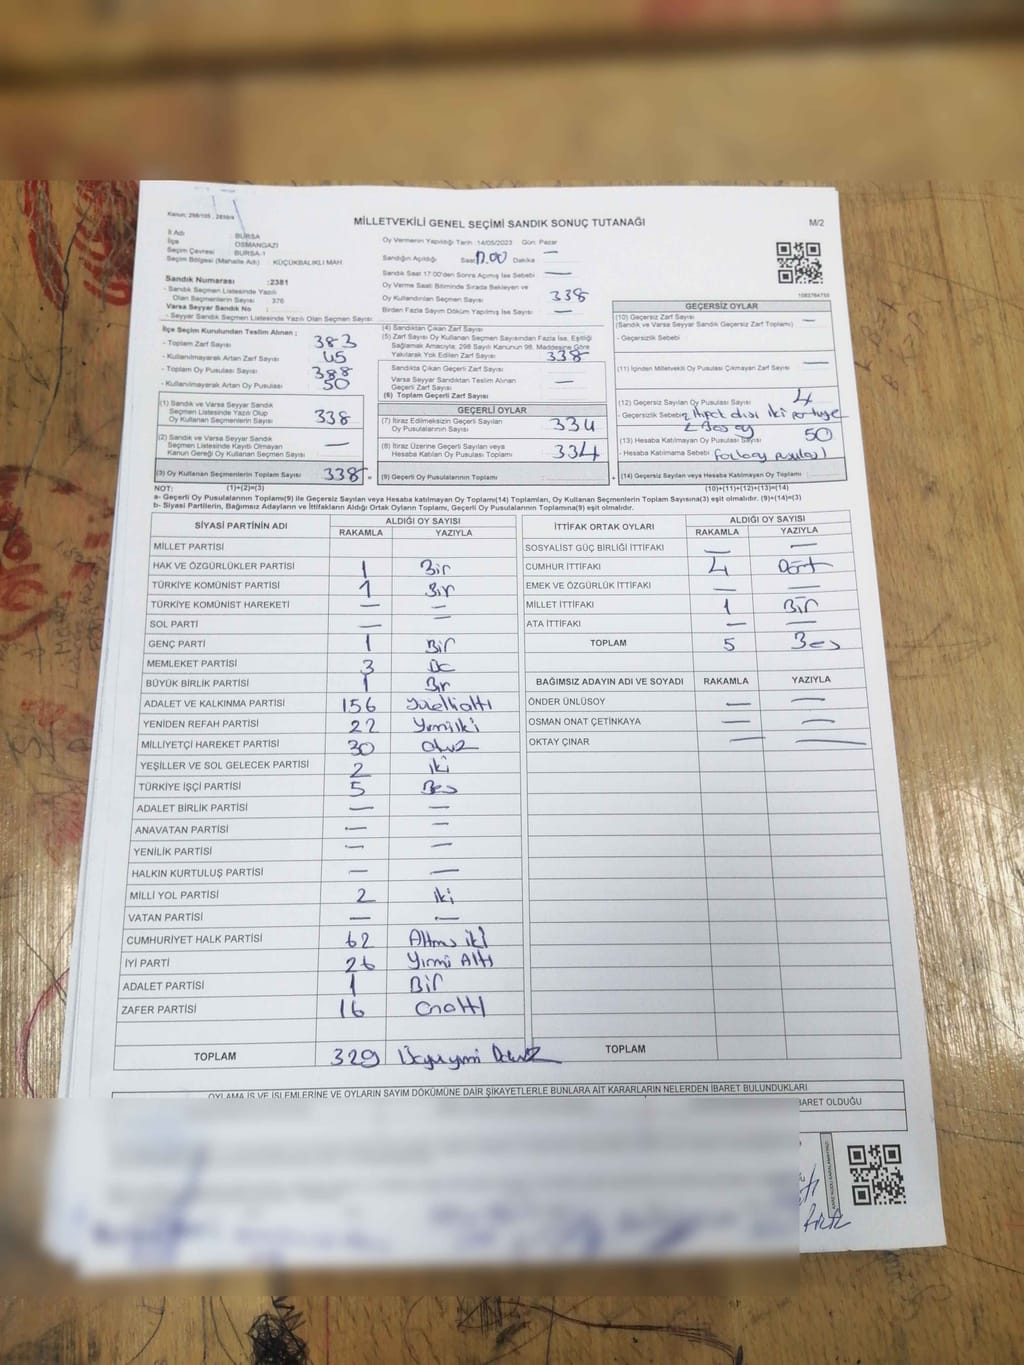 MİLLETVEKİLİ GENEL SEÇİMİ SANDIK SONUÇ TUTANAĞI
M/2
İl Adı : BURSA
İlçe : OSMANGAZİ
Seçim Çevresi : BURSA-1
Seçim Bölgesi (Mahalle Adı) : KÜÇÜKBALIKLI MAH.
Sandık Numarası :2381
- Sandık Seçmen Listesinde Yazılı
Olan Seçmenlerin Sayısı : 376
Varsa Seyyar Sandık No :
- Seyyar Sandık Seçmen Listesinde Yazılı Olan Seçmen Sayısı:
Oy Vermenin Yapıldığı Tarih :14/05/2023 Gün: Pazar
Sandığın Açıldığı Saat 17.00 Dakika —
Sandık Saat 17:00'den Sonra Açılmış İse Sebebi —
Oy Verme Saati Bitiminde Sırada Bekleyen ve
Oy Kullandırılan Seçmen Sayısı 338
Birden Fazla Sayım Döküm Yapılmış İse Sayısı —
1083784755
İlçe Seçim Kurulundan Teslim Alınan ;
- Toplam Zarf Sayısı : 383
- Kullanılmayarak Artan Zarf Sayısı : 45
- Toplam Oy Pusulası Sayısı : 388
- Kullanılmayarak Artan Oy Pusulası : 50
(1) Sandık ve Varsa Seyyar Sandık
Seçmen Listesinde Yazılı Olup
Oy Kullanan Seçmenlerin Sayısı : 338
(2) Sandık ve Varsa Seyyar Sandık
Seçmen Listesinde Kayıtlı Olmayan
Kanun Gereği Oy Kullanan Seçmen Sayısı : —
(3) Oy Kullanan Seçmenlerin Toplam Sayısı : 338 =
(4) Sandıktan Çıkan Zarf Sayısı
(5) Zarf Sayısı Oy Kullanan Seçmen Sayısından Fazla İse, Eşitliği
Sağlamak Amacıyla; 298 Sayılı Kanunun 98. Maddesine Göre
Yakılarak Yok Edilen Zarf Sayısı : 338
Sandıkta Çıkan Geçerli Zarf Sayısı
Varsa Seyyar Sandıktan Teslim Alınan
Geçerli Zarf Sayısı : —
(6) Toplam Geçerli Zarf Sayısı
GEÇERLİ OYLAR
(7) İtiraz Edilmeksizin Geçerli Sayılan
Oy Pusulalarının Sayısı : 334
(8) İtiraz Üzerine Geçerli Sayılan veya
Hesaba Katılan Oy Pusulası Toplamı : 334
(9) Geçerli Oy Pusulalarının Toplamı : +
GEÇERSİZ OYLAR
(10) Geçersiz Zarf Sayısı
(Sandık ve Varsa Seyyar Sandık Geçersiz Zarf Toplamı) : —
- Geçersizlik Sebebi
(11) İçinden Milletvekili Oy Pusulası Çıkmayan Zarf Sayısı : —
(12) Geçersiz Sayılan Oy Pusulası Sayısı : 4
- Geçersizlik Sebebi: 2 iki
2 Boş oy
(13) Hesaba Katılmayan Oy Pusulası Sayısı : 50
- Hesaba Katılmama Sebebi : fazla oy pusulası
(14) Geçersiz Sayılan veya Hesaba Katılmayan Oy Toplamı :
NOT: (1)+(2)=(3) (10)+(11)+(12)+(13)=(14)
a- Geçerli Oy Pusulalarının Toplamı(9) ile Geçersiz Sayılan veya Hesaba katılmayan Oy Toplamı(14) Toplamları, Oy Kullanan Seçmenlerin Toplam Sayısına(3) eşit olmalıdır. (9)+(14)=(3)
b- Siyasi Partilerin, Bağımsız Adayların ve İttifakların Aldığı Ortak Oyların Toplamı, Geçerli Oy Pusulalarının Toplamına(9) eşit olmalıdır.
SİYASİ PARTİNİN ADI ALDIĞI OY SAYISI
RAKAMLA YAZIYLA
MİLLET PARTİSİ
HAK VE ÖZGÜRLÜKLER PARTİSİ 1 Bir
TÜRKİYE KOMÜNİST PARTİSİ 1 Bir
TÜRKİYE KOMÜNİST HAREKETİ — —
SOL PARTİ — —
GENÇ PARTİ 1 Bir
MEMLEKET PARTİSİ 3 Üç
BÜYÜK BİRLİK PARTİSİ 1 Bir
ADALET VE KALKINMA PARTİSİ 156 Yüzellialtı
YENİDEN REFAH PARTİSİ 22 Yirmiiki
MİLLİYETÇİ HAREKET PARTİSİ 30 Otuz
YEŞİLLER VE SOL GELECEK PARTİSİ 2 iki
TÜRKİYE İŞÇİ PARTİSİ 5 Beş
ADALET BİRLİK PARTİSİ — —
ANAVATAN PARTİSİ — —
YENİLİK PARTİSİ — —
HALKIN KURTULUŞ PARTİSİ — —
MİLLİ YOL PARTİSİ 2 iki
VATAN PARTİSİ — —
CUMHURİYET HALK PARTİSİ 62 Altmış iki
İYİ PARTİ 26 Yirmi Altı
ADALET PARTİSİ 1 Bir
ZAFER PARTİSİ 16 Onaltı
TOPLAM 329 Üçyüzyirmi Dokuz
İTTİFAK ORTAK OYLARI ALDIĞI OY SAYISI
RAKAMLA YAZIYLA
SOSYALİST GÜÇ BİRLİĞİ İTTİFAKI — —
CUMHUR İTTİFAKI 4 Dört
EMEK VE ÖZGÜRLÜK İTTİFAKI — —
MİLLET İTTİFAKI 1 Bir
ATA İTTİFAKI — —
TOPLAM 5 Beş
BAĞIMSIZ ADAYIN ADI VE SOYADI RAKAMLA YAZIYLA
ÖNDER ÜNLÜSOY — —
OSMAN ONAT ÇETİNKAYA — —
OKTAY ÇINAR — —
TOPLAM
OYLAMA İŞ VE İŞLEMLERİNE VE OYLARIN SAYIM DÖKÜMÜNE DAİR ŞİKAYETLERLE BUNLARA AİT KARARLARIN NELERDEN İBARET BULUNDUKLARI
BARET OLDUĞU